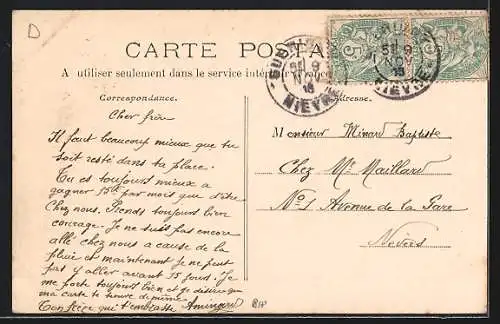 D
CARTE POSTA
A utiliser seulement dans le service intérieur
Correspondance.
Adresse.
Cher frère
Il faut beaucoup mieux que tu
soit resté dans ta place.
Tu es toujours mieux a
gagner 15f par mois que d'être
Chez nous. Prends toujours bien
courage. Je ne suis pas encore
allé chez nous a cause de la
pluie et maintenant je ne peut
pas y aller avant 15 jours. Je
me porte toujours bien et je désire que
ma carte te trouve de même.
Ton frère qui t'embrasse
Monsieur Minard Baptiste
Chez Mr Maillard
No 1 Avenue de la Gare
Nevers
NIEVRE
NOV
13
5
NIEVRE
NOV
13
5